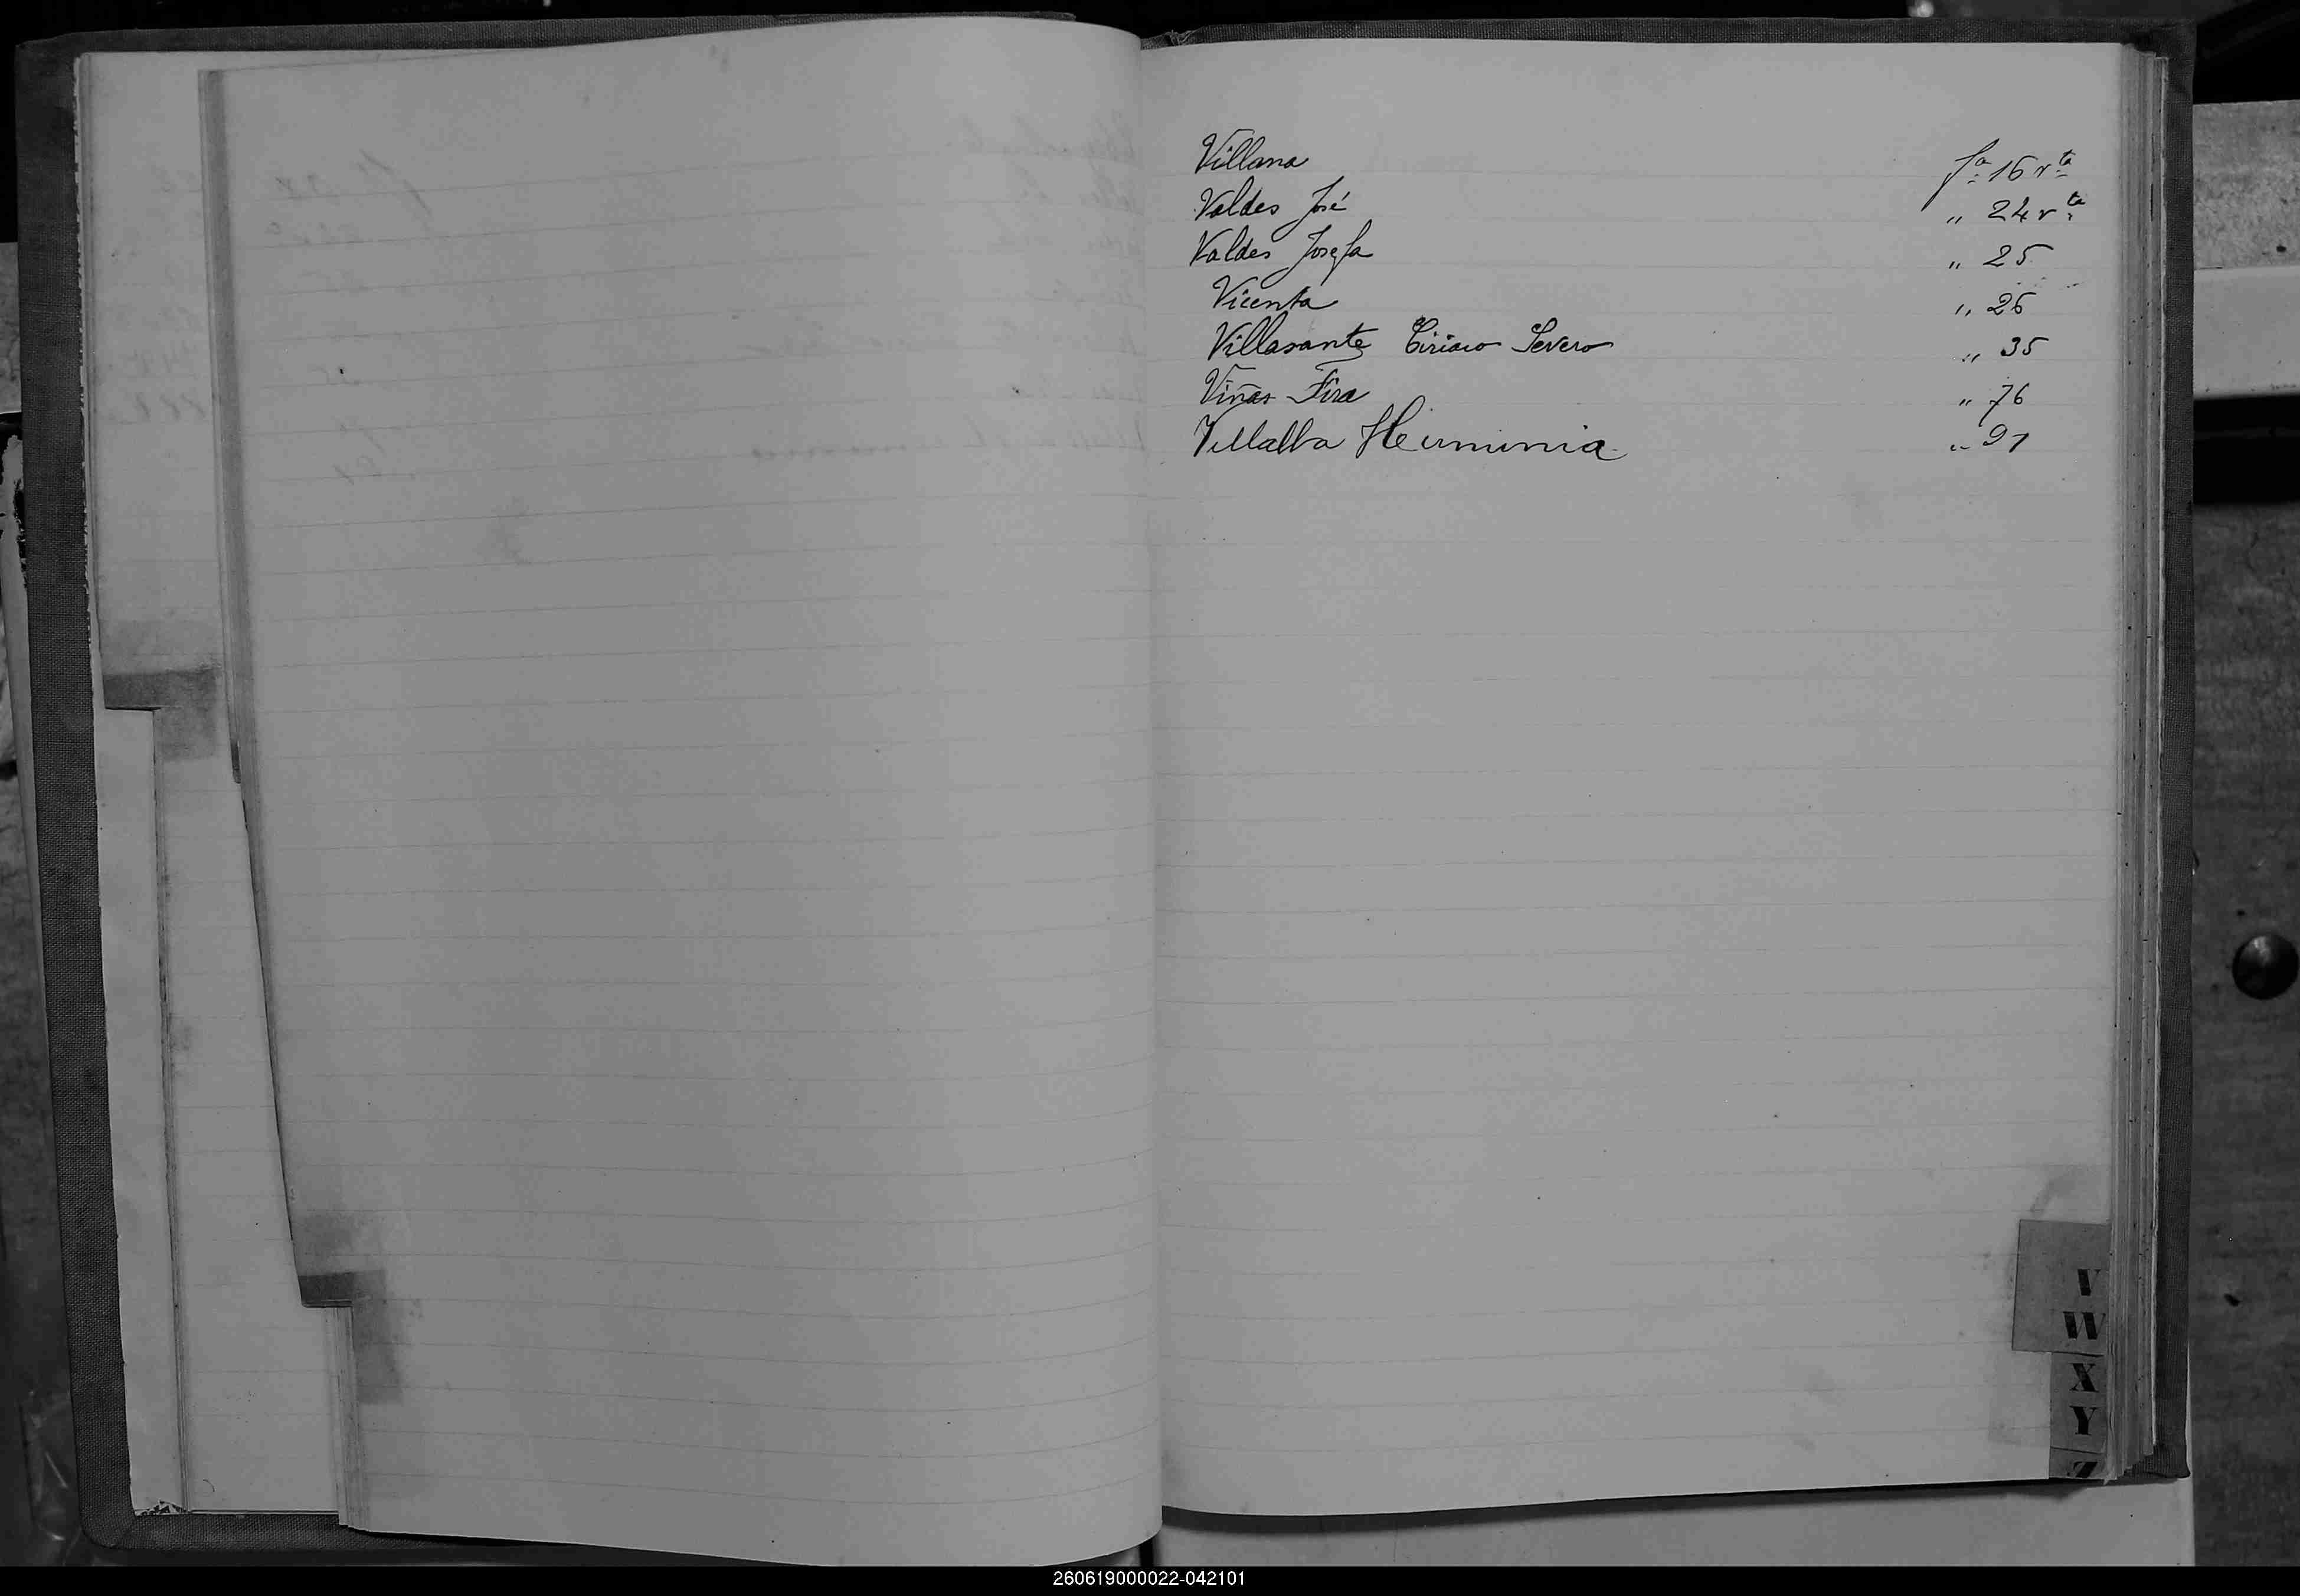 Villana fª 16 vta
Valdes José " 24 vta
Valdes Josefa " 25
Vicenta " 26
Villasante Ciriaco Severo " 35
Viñas Fira " 76
Villalba Herminia " 91
V
W
X
Y
Z
260619000022-042101